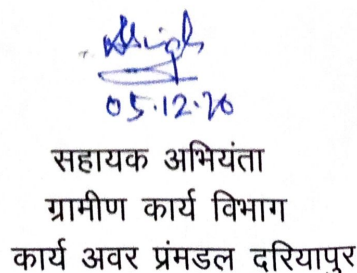 05.12.20
सहायक अभियंता
ग्रामीण कार्य विभाग
कार्य अवर प्रंमडल दरियापुर